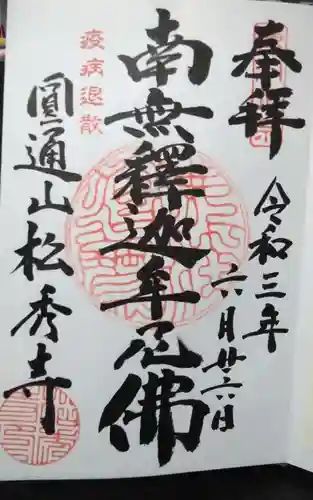 奉拝
令和三年
六月廿六日
南無釋迦牟尼佛
疫病退散
圓通山松秀寺